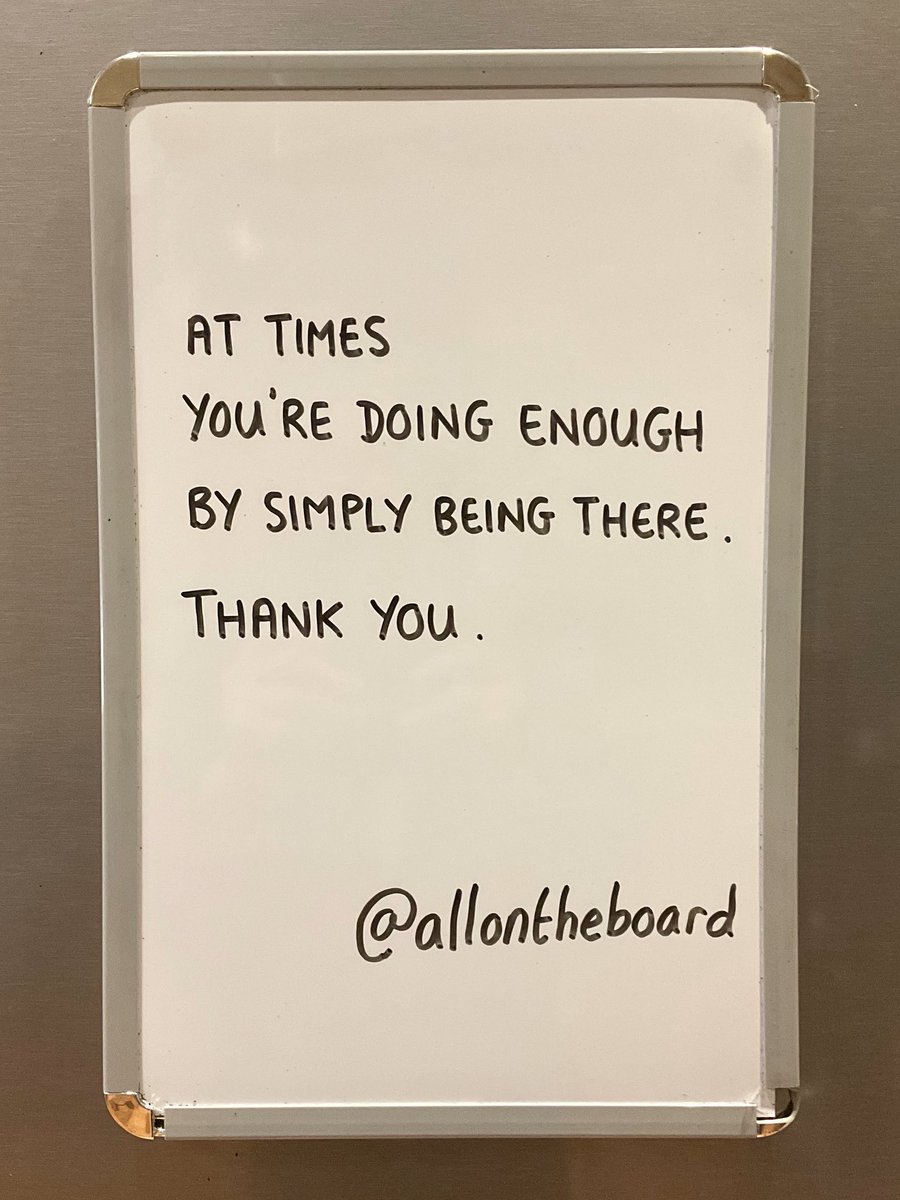 AT TIMES
YOU'RE DOING ENOUGH
BY SIMPLY BEING THERE.
THANK YOU.
@allontheboard